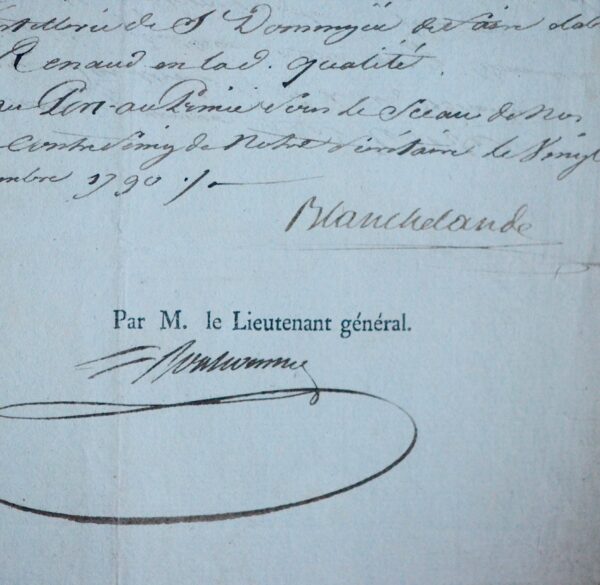 artillerie de St Domingüe de faire
Renaud en lad. qualité.
au Port-au-Prince sous le Sceau de Nos
Contreseing de Notre Sécrétaire le Vingt
mbre 1790 ./.
Blanchelande
Par M. le Lieutenant général.